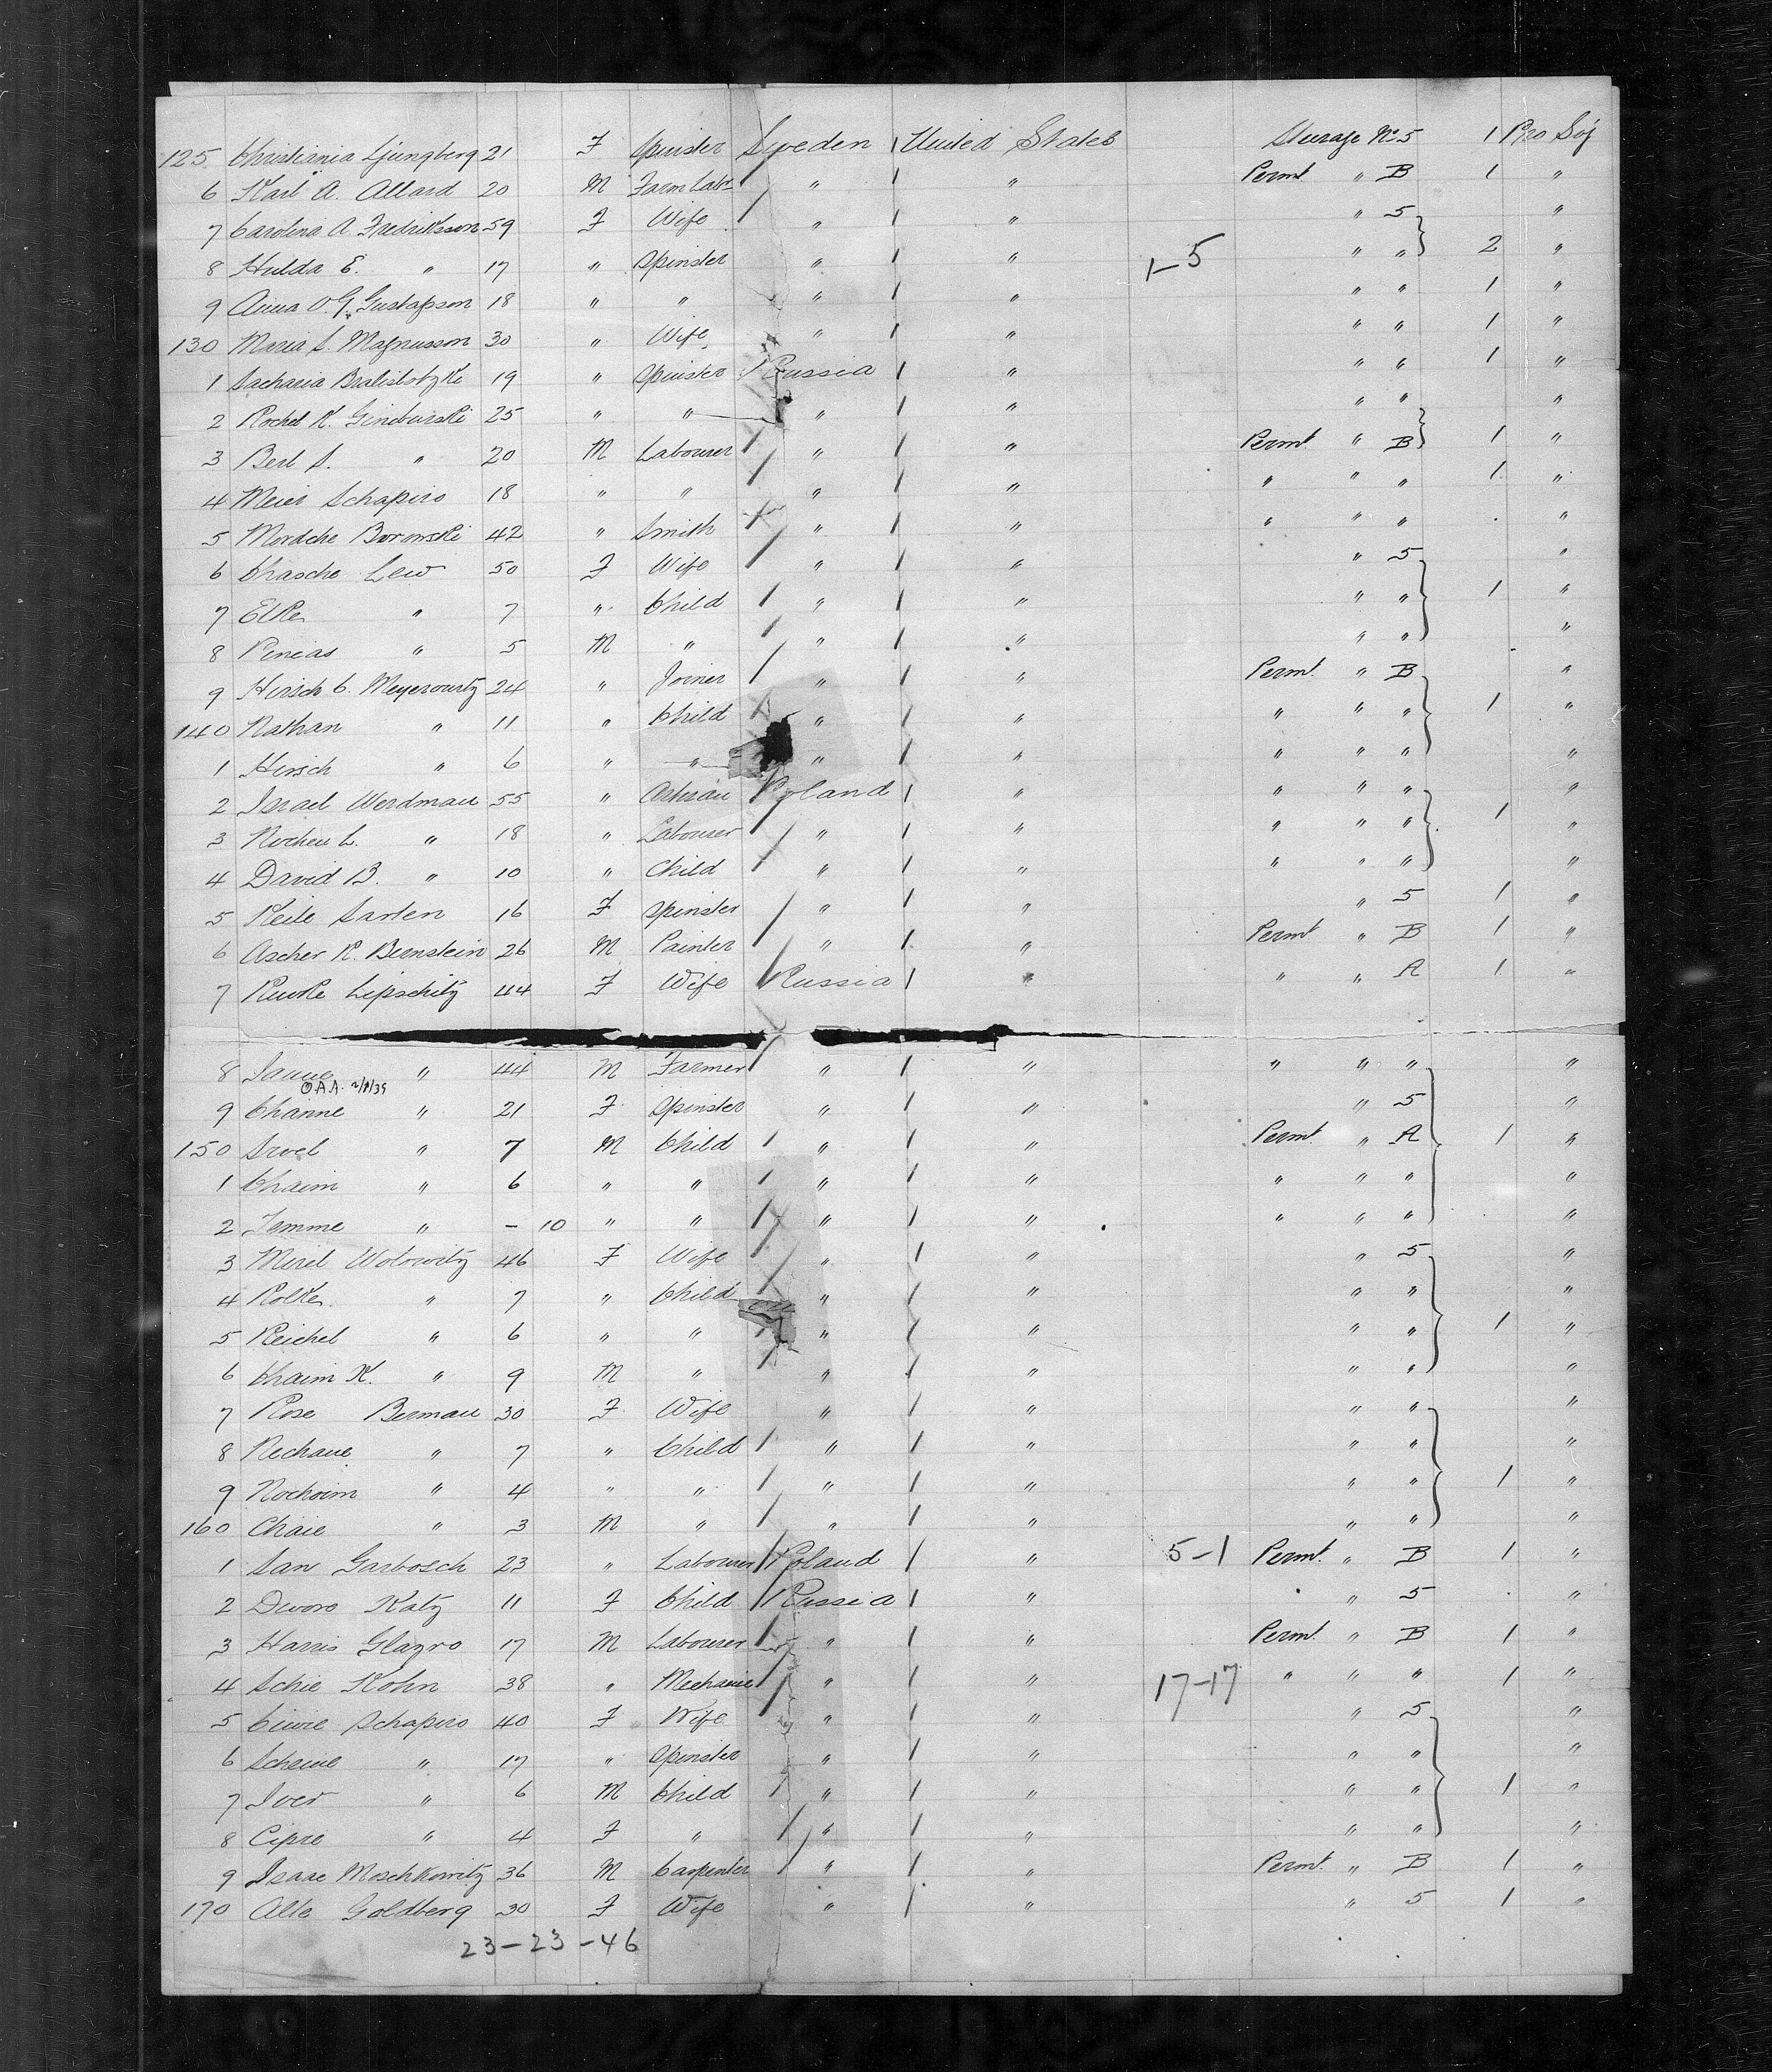 125 Christiania Ljungberg 21 F Spinster Sweden 1 United States Steerage No 5 1 Pro Soj
6 Karl A. Allard 20 M Farm Labr 1 " 1 " Permt " B 1 "
7 Carolina A Fredriksson 59 F Wife 1 " 1 " " 5 "
8 Hulda E. " 17 " Spinster " 1 " 1-5 " " 2 "
9 Anna O.G. Gustafsson 18 " " " 1 " " " 1 "
130 Maria S. Magnusson 30 " Wife " 1 " " " 1 "
1 19 " Spinster Russia 1 " " " 1 "
2 Rochel K. Ginsburski 25 " " " " " " "
3 Berl S. " 20 M Labourer 1 " 1 " Permt " B 1 "
4 Meier Schapiro 18 " " 1 " 1 " " " " 1 "
5 Mordche Borowski 42 " Smith 1 " 1 " " " " "
6 Chasche Lew 50 F Wife 1 " 1 " " 5 "
7 Elke " 7 " Child 1 " 1 " " " 1 "
8 Pincas " 5 M " 1 " 1 " " " "
9 Hirsch C. Meyerowitz 24 " Joiner 1 " 1 " Permt. " B "
140 Nathan " 11 " Child 1 " 1 " " " " 1 "
1 Hirsch " 6 " " " 1 " " " " "
2 Israel Werdman 55 " Artisan Poland 1 " " " " "
3 L. " 18 " Labourer 1 " 1 " " " " 1 "
4 David B. " 10 " Child 1 " 1 " " " " "
5 Keile Sarten 16 F Spinster 1 " 1 " " 5 1 "
6 Ascher K. Bernstein 26 M Painter 1 " 1 " Permt " B 1 "
7 Riwke Lipschitz 44 F Wife Russia 1 " " " A 1 "
8 " 44 M Farmer 1 " 1 " " " " "
O.A.A. 2/8/39
9 Channe " 21 F Spinster " 1 " " 5 "
150 Sroel " 7 M Child 1 " 1 " Permt. " A 1 "
1 Chaim " 6 " " 1 " 1 " " " " "
2 Temme " - 10 " " 1 " 1 " " " " "
3 Merel Wolowitz 46 F Wife 1 " 1 " " 5 "
4 Rolke " 7 " Child 1 " 1 " " " "
5 Reichel " 6 " " 1 " 1 " " " 1 "
6 Chaim K. " 9 M " 1 " 1 " " " "
7 Rose Berman 30 F Wife " 1 " " " "
8 Nechame " 7 " Child 1 " 1 " " " "
9 Nochoim " 4 " " 1 " 1 " " " 1 "
160 Chaie " 3 M " 1 " 1 " " " "
1 San Garbosch 23 " Labourer 1 Poland 1 " 5-1 Permt. " B 1 "
2 Dworo Katz 11 F Child 1 Russia 1 " " 5 "
3 Harris Glazro 17 M Labourer 1 " 1 " Permt. " B 1 "
4 Schie Kohn 38 " Mechanic 1 " 1 " 17-17 " " " 1 "
5 Schapiro 40 F Wife 1 " 1 " " 5 "
6 Scheine " 17 " Spinster " 1 " " " "
7 Iver " 6 M Child 1 " 1 " " " 1 "
8 Cipre " 4 F " 1 " 1 " " " "
9 Isaac Moschkowitz 36 M Carpenter 1 " 1 " Permt. " B 1 "
170 Alte Goldberg 30 F Wife " 1 " " 5 1 "
23-23-46